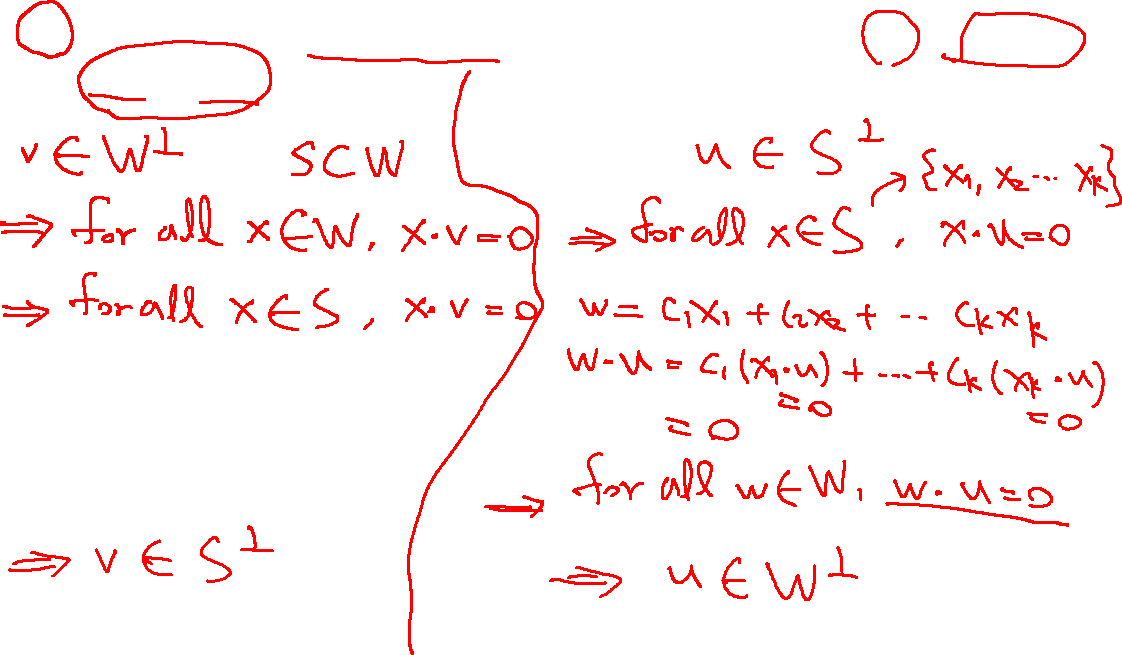 v ∈ W⊥ S ⊂ W
⇒ for all x ∈ W, x·v = 0
⇒ for all x ∈ S, x·v = 0
⇒ v ∈ S⊥
u ∈ S⊥
{x₁, x₂ ... xₖ}
⇒ for all x ∈ S, x·u = 0
w = c₁x₁ + c₂x₂ + ·· cₖxₖ
w·u = c₁(x₁·u) + ... + cₖ(xₖ·u)
= 0 = 0
= 0
⇒ for all w ∈ W, w·u = 0
⇒ u ∈ W⊥